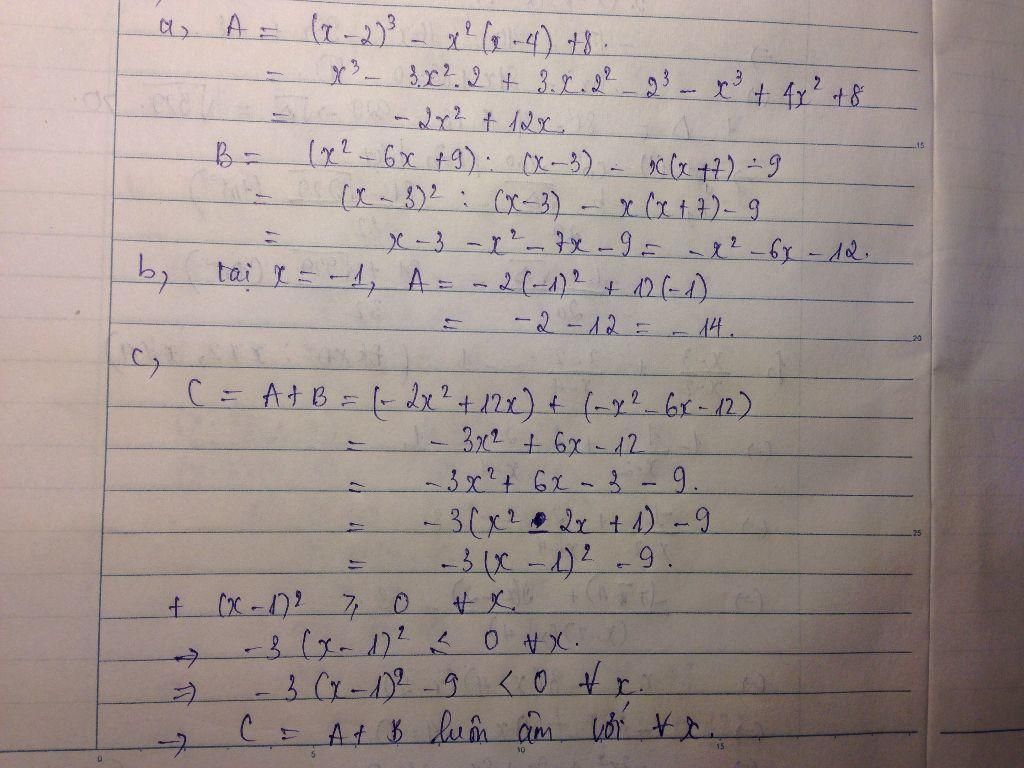 a, A = (x-2)³ - x²(x-4) +8.
= x³ - 3.x².2 + 3.x.2² - 2³ - x³ + 4x² +8
= -2x² + 12x.
B = (x² - 6x +9) : (x-3) - x(x+7) - 9
= (x-3)² : (x-3) - x(x+7) - 9
= x-3 - x² - 7x - 9 = -x² - 6x - 12.
b, tại x = -1, A = -2(-1)² + 12(-1)
= -2 - 12 = -14.
c,
C = A+B = (-2x² + 12x) + (-x² - 6x - 12)
= -3x² + 6x - 12
= -3x² + 6x - 3 - 9.
= -3(x² - 2x + 1) - 9
= -3(x - 1)² - 9.
+ (x-1)² ≥ 0 ∀ x.
⇒ -3(x-1)² ≤ 0 ∀x.
⇒ -3(x-1)² - 9 < 0 ∀ x.
⇒ C = A+B luôn âm với ∀ x.